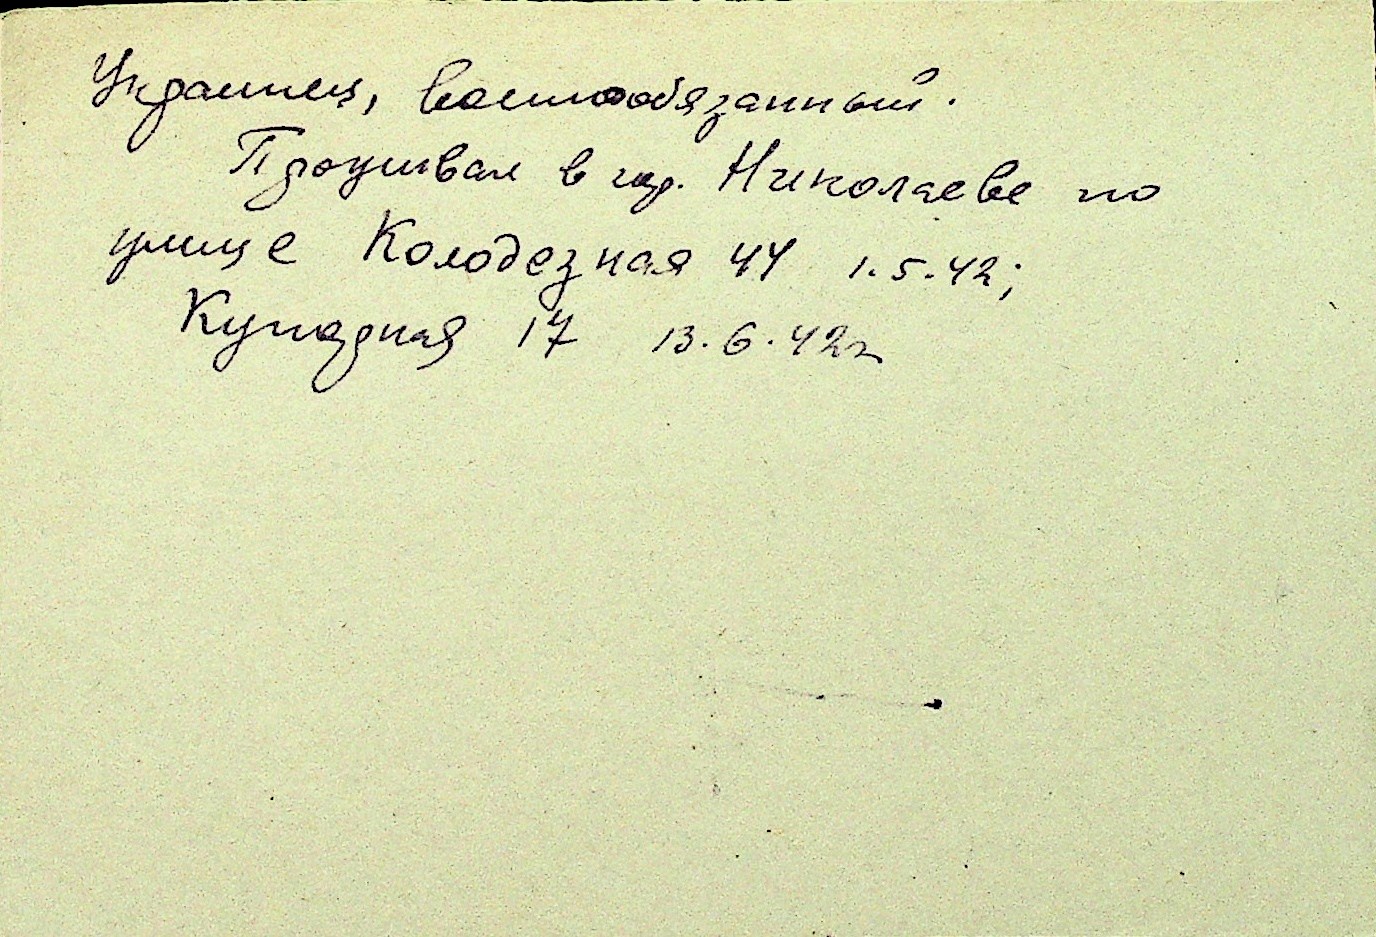 Украинец, военнообязанный.
Проживал в гор. Николаеве по
улице Колодезная 44 1.5.42;
17 13.6.42г